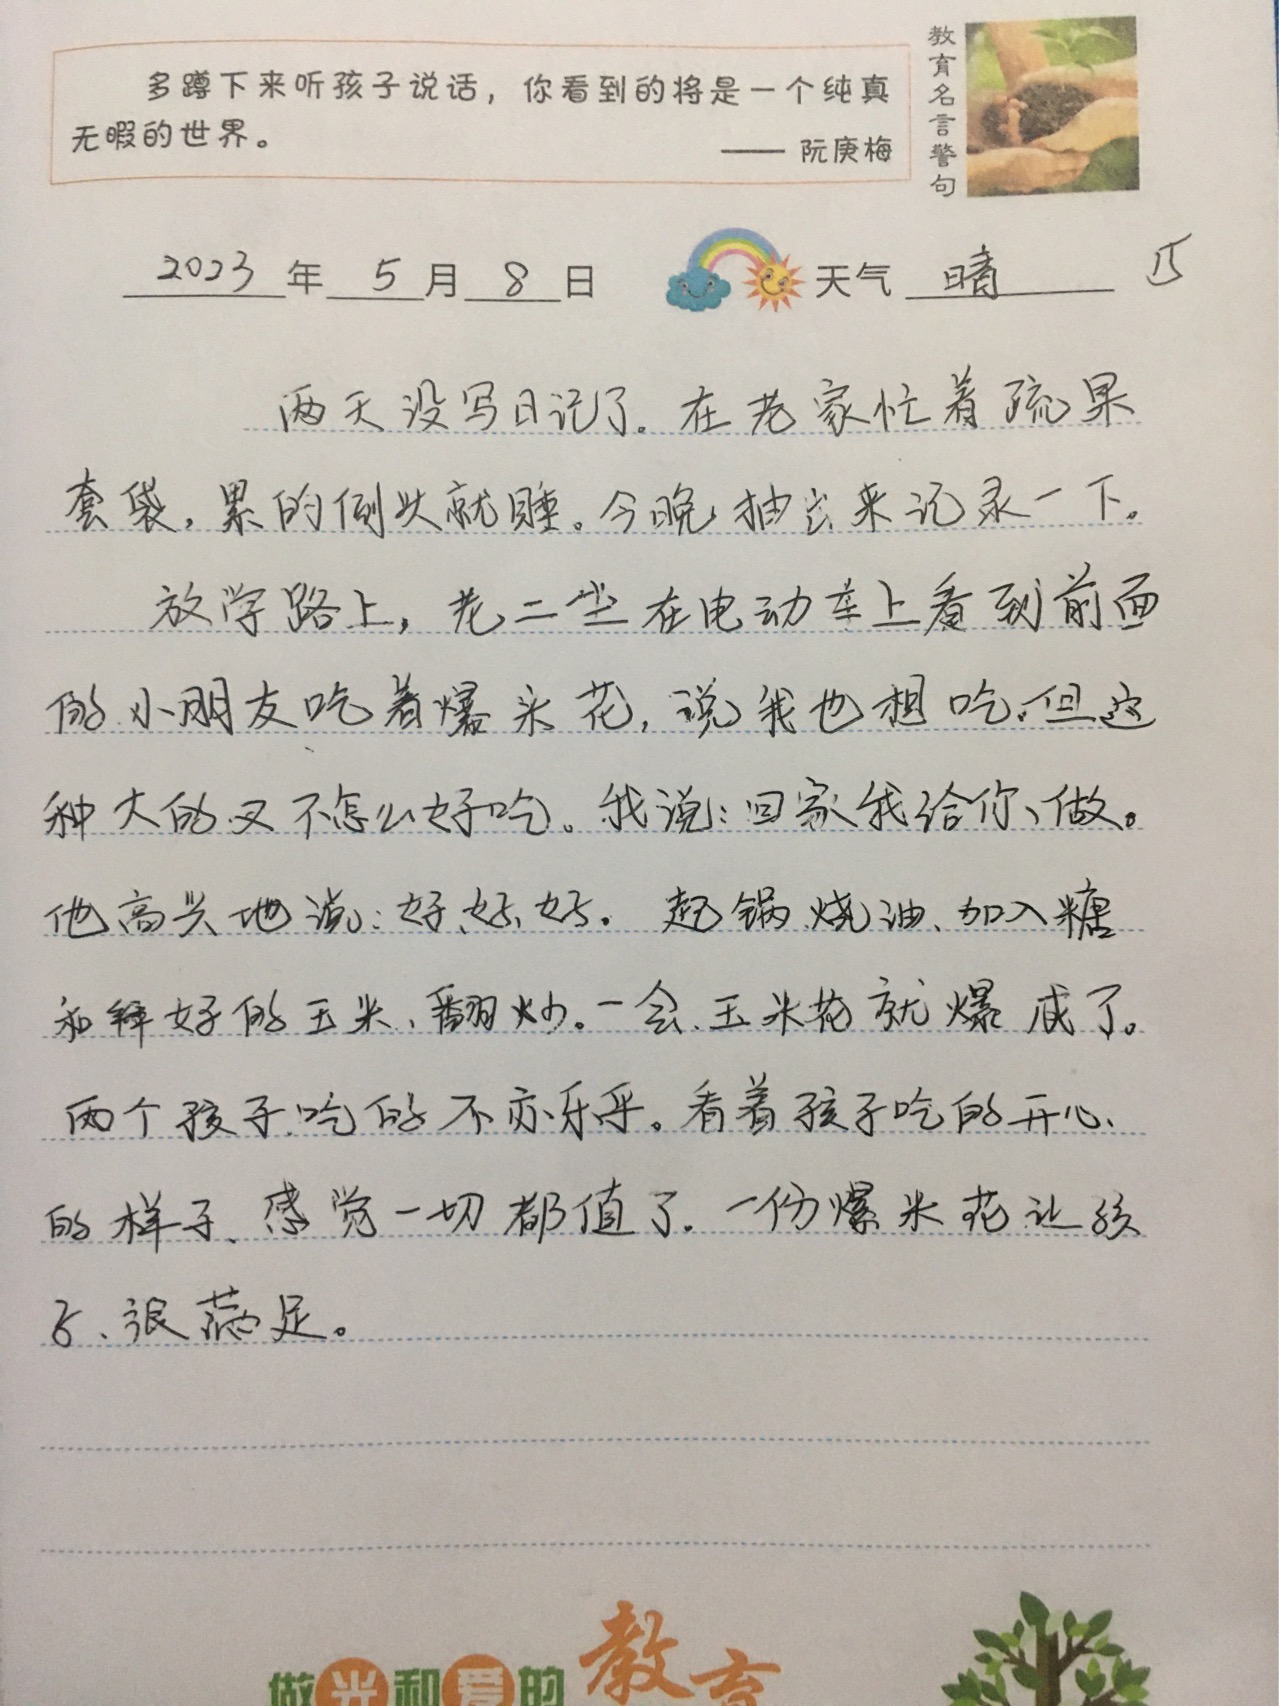 多蹲下来听孩子说话，你看到的将是一个纯真
无暇的世界。
—— 阮庚梅
教育名言警句
2023年5月8日 天气 晴
两天没写日记了。在老家忙着疏果
套袋，累的倒头就睡。今晚抽出来记录一下。
放学路上，老二坐在电动车上看到前面
的小朋友吃着爆米花，说我也想吃。但这
种大的又不怎么好吃。我说：回家我给你做。
他高兴地说：好、好、好。起锅烧油、加入糖
和拌好的玉米、翻炒。一会、玉米花就爆成了。
两个孩子吃的不亦乐乎。看着孩子吃的开心、
的样子、感觉一切都值了。一份爆米花让孩
子、很满足。
做光和爱的教育